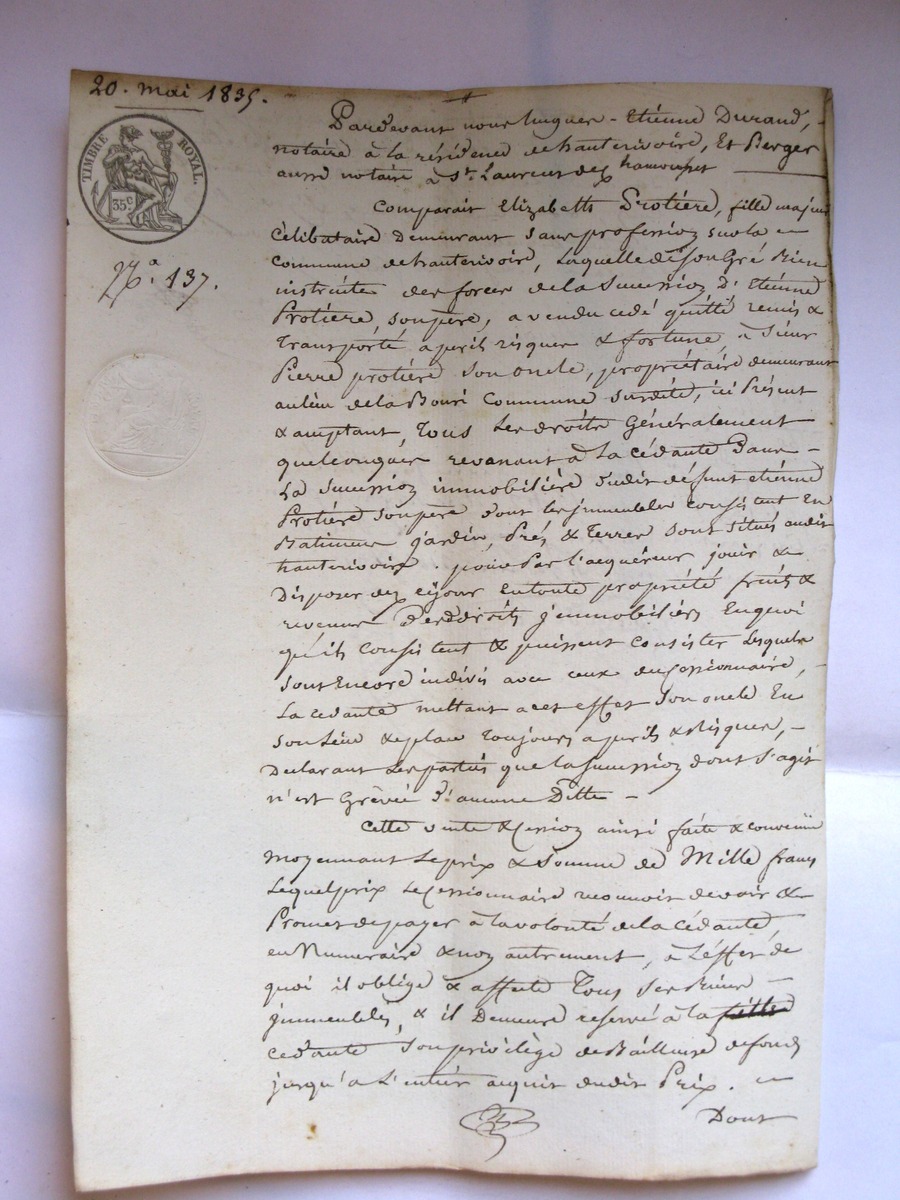 20. mai 1835.
TIMBRE ROYAL.
35 c.
No. 137.
Pardevant nous hugues-Etienne Durand,
notaire à la résidence de hauterivoire, Et Berger
aussi notaire à St. Laurent de chamousset
Comparait Elizabeth Protière, fille majeure
Célibataire Demeurant sans profession sur la
Commune de hauterivoire, Laquelle de son Gré Bien
instruite des forces de la succession d'Etienne
Protière, son père, a vendu cédé quitté remis &
Transporté a perils risques & fortune, à Sieur
Pierre protière son oncle, propriétaire demeurant
au lieu de la Commune susdite, ici Présent
& acceptant, Tous Les droits Généralement
quelconques revenant à La cédante Dans
La succession immobilière dudit défunt etienne
Protière son père dont les immeubles consistent En
Batiments jardin, Prés & Terres sont situés audit
hauterivoire. pour Par l'acquéreur jouir &
Disposer dez cejour Entoute propriété fruits &
revenus Desdroits jmmobiliers Enquoi
qu'ils consistent & puissent consister Lesquels
sont Encore indivis avec ceux du Cessionnaire,
La cédante mettant a cet effet Son oncle En
Son Lieu & place Toujours a perils & Risques,
Declarant Les parties que la succession dont s'agit
n'est Grêvée d'aucune Dette
Cette vente & Cession ainsi faite & convenue
moyennant Le prix & Somme de Mille francs
Lequel prix Le Cessionnaire reconnoit devoir &
Promet depayer à la volonté de la Cédante,
en Numeraire & non autrement, à L'effet de
quoi il oblige & affecte Tous Ses Biens
jmmeubles, & il Demeure reservé à la
cédante son privilège de Bailleuse de fonds
jusqu'a L'entier acquit dudit Prix.
Dont